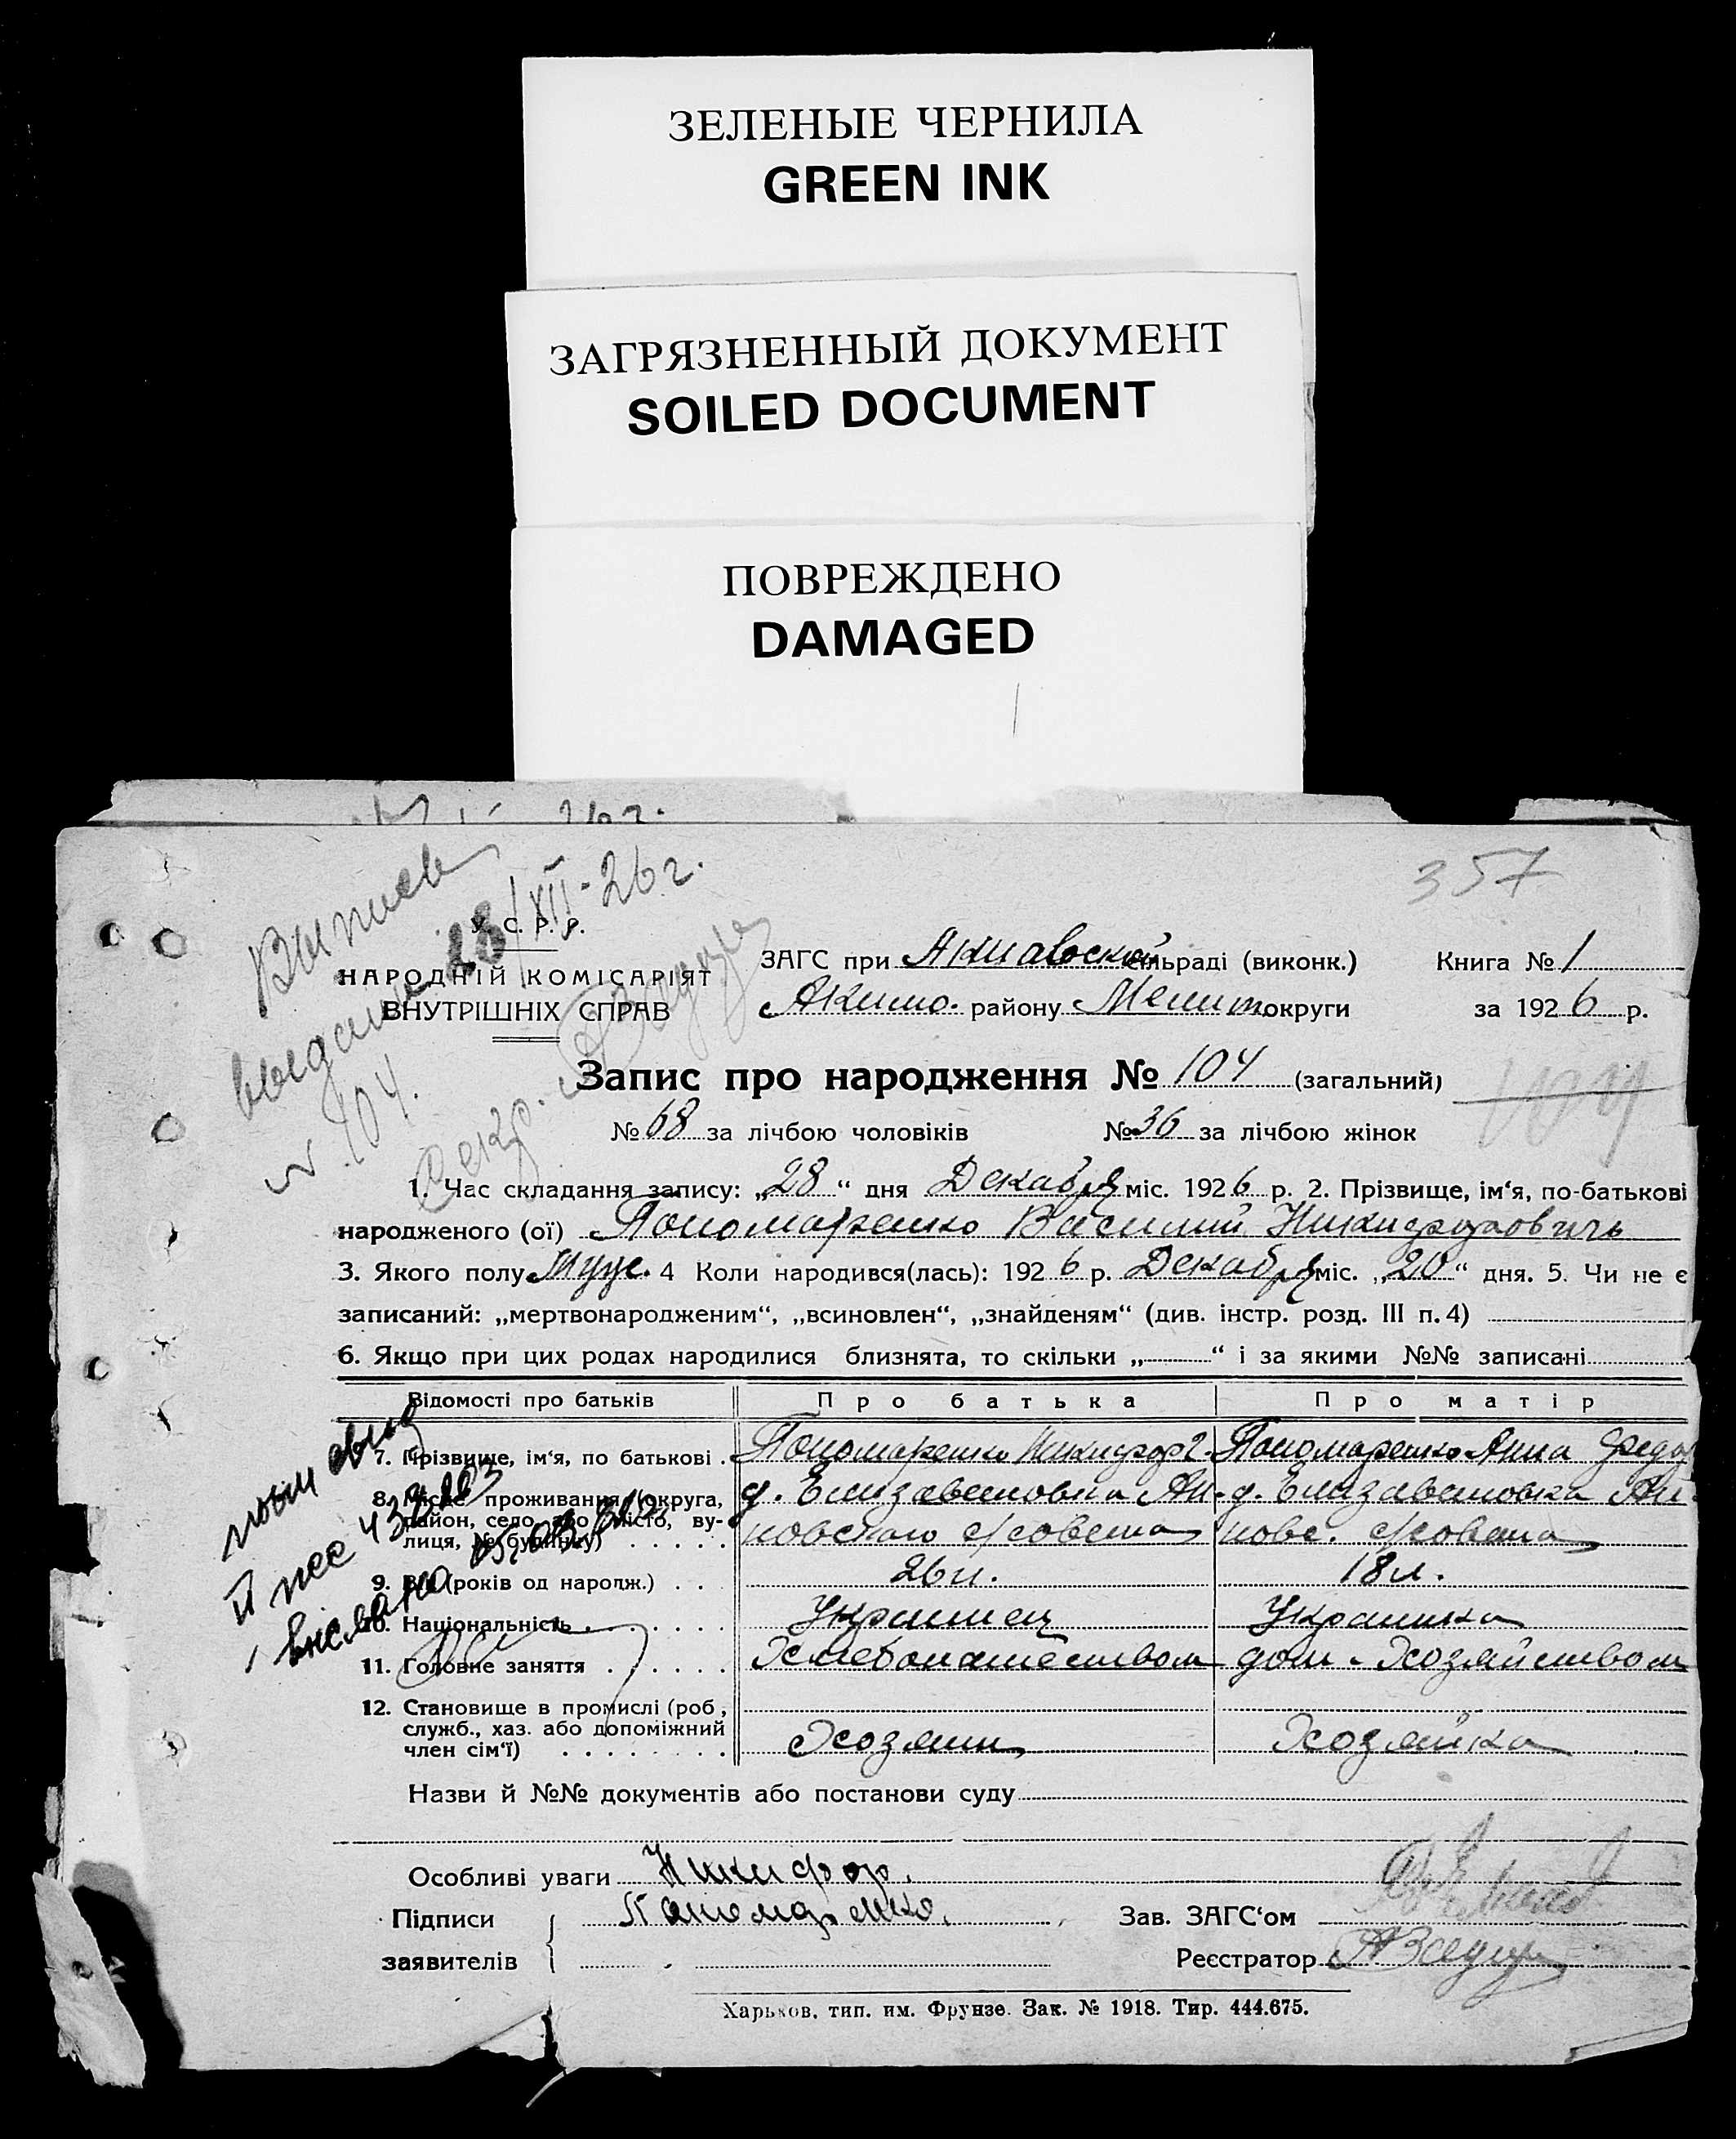 ЗЕЛЕНЫЕ ЧЕРНИЛА
GREEN INK
ЗАГРЯЗНЕННЫЙ ДОКУМЕНТ
SOILED DOCUMENT
ПОВРЕЖДЕНО
DAMAGED
26 г.
357
Выписев
выдана 28/XII-26 г.
№ 104.
Секр.
У. С. Р. Р.
НАРОДНІЙ КОМІСАРІЯТ
ВНУТРІШНІХ СПРАВ
ЗАГС при сільраді (виконк.) Книга № 1
Акимо. району Мелит. округи за 1926 р.
Запис про народження № 104 (загальний)
104
№ 68 за лічбою чоловіків № 36 за лічбою жінок
1. Час складання запису: „28“ дня Декабря міс. 1926 р. 2. Прізвище, ім‘я, по-батькові
народженого (ої) Пономаренко Василий Никифорович
3. Якого полу Муж. 4 Коли народився(лась): 1926 р. Декабря міс. „20“ дня. 5. Чи не є
записаний: „мертвонародженим“, „всиновлен“, „знайденям“ (див. інстр. розд. III п. 4)
6. Якщо при цих родах народилися близнята, то скільки „ “ і за якими №№ записані
Відомості про батьків Про батька Про матір
7. Прізвище, ім‘я, по батькові . Пономаренко Никифор Г. Пономаренко Анна Федор
8. Місце проживання (округа, район, село, або місто, вулиця, № будинку) . . . . . д. Елизаветовка Ак- д. Елизаветовка Ак-
новского с/совета новс. с/совета
9. Вік (років од народж.) . . 26 л. 18 л.
10. Національність . . . . . Украинец Украинка
11. Головне заняття . . . . . . Хлебопашеством дом. Хозяйством
12. Становище в промислі (роб.,
служб., хаз. або допоміжний
член сім‘ї) . . . . . . . . Хозяин Хозяйка
Назви й №№ документів або постанови суду
Особливі уваги Никифор.
Підписи Пономаренко.
заявителів
Зав. ЗАГС‘ом
Реєстратор
Харьков, тип. им. Фрунзе. Зак. № 1918. Тир. 444.675.